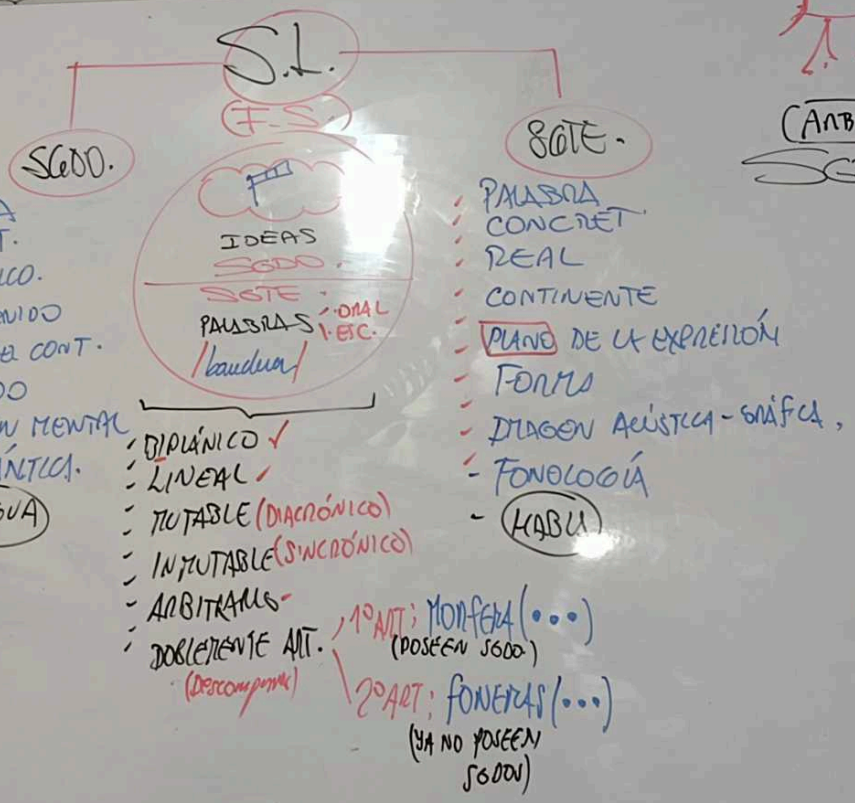 S.L.
(F.S.)
SGDO.
SGTE.
IDEAS
SGDO.
SGTE.
PALABRAS
- ORAL
- ESC.
/bandera/
T.
ICO.
NIDO
CONT.
DO
N MENTAL
ÁNTICA.
GUA
- BIPLÁNICO ✓
- LINEAL
- MUTABLE (DIACRÓNICO)
- INMUTABLE (SINCRÓNICO)
- ARBITRARIO -
- DOBLEMENTE ART.
1º ART: MORFEMA (...)
(POSEEN SGDO.)
2º ART: FONEMAS (...)
(YA NO POSEEN
SGDOS)
- PALABRA
- CONCRET.
- REAL
- CONTINENTE
- PLANO DE LA EXPRESIÓN
- FORMA
- IMAGEN ACÚSTICA - GRÁFICA.
- FONOLOGÍA
- HABLA